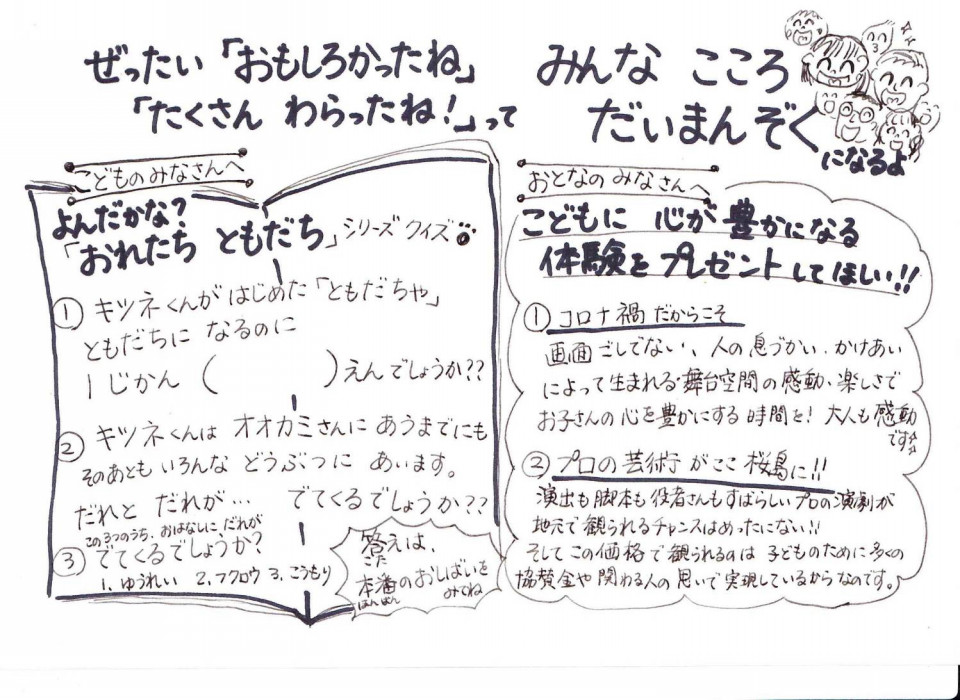 ぜったい「おもしろかったね」
「たくさん わらったね!」って
みんな こころ
だいまんぞく
になるよ
こどものみなさんへ
よんだかな?
「おれたち ともだち」シリーズ クイズ
① キツネくんが はじめた「ともだちや」
ともだちに なるのに
1じかん (　　　　)えんでしょうか??
② キツネくんは オオカミさんに あうまでにも
そのあとも いろんな どうぶつに あいます。
だれと だれが… でてくるでしょうか??
この3つのうち、おはなしに、だれが
③ でてくるでしょうか?
1. ゆうれい 2. フクロウ 3. こうもり
答えは、
こた
本番のおしばいを
ほんばん
みてね
おとなの みなさんへ
こどもに 心が 豊かになる
体験を プレゼント してほしい!!
① コロナ禍 だからこそ
画面ごしでない、人の息づかい、かけあい
によって生まれる舞台空間の感動、楽しさで
お子さんの心を豊かにする時間を! 大人も感動
です
② プロの芸術 が ここ 桜島に!!
演出も脚本も役者さんもすばらしいプロの演劇が
地元で観られるチャンスはめったにない!!
そして この価格で観られるのは 子どものために多くの
協賛金や関わる人の思いで実現しているからなのです。